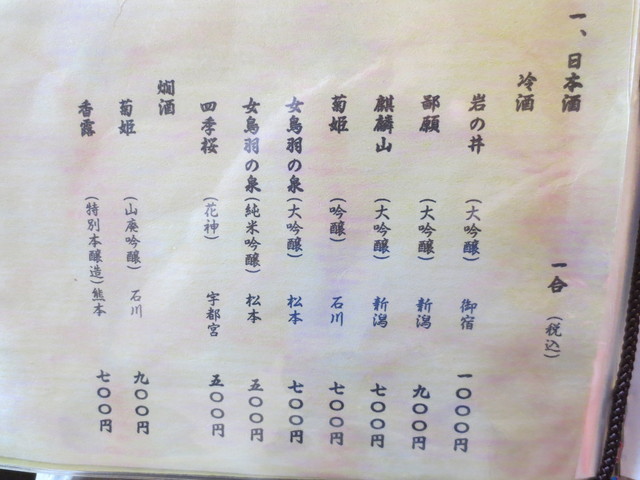 一、日本酒
冷酒 一合 (税込)
岩の井 (大吟醸) 御宿 一〇〇〇円
鄙願 (大吟醸) 新潟 九〇〇円
麒麟山 (大吟醸) 新潟 七〇〇円
菊姫 (吟醸) 石川 七〇〇円
女鳥羽の泉 (大吟醸) 松本 七〇〇円
女鳥羽の泉 (純米吟醸) 松本 五〇〇円
四季桜 (花神) 宇都宮 五〇〇円
燗酒
菊姫 (山廃吟醸) 石川 九〇〇円
香露 (特別本醸造) 熊本 七〇〇円